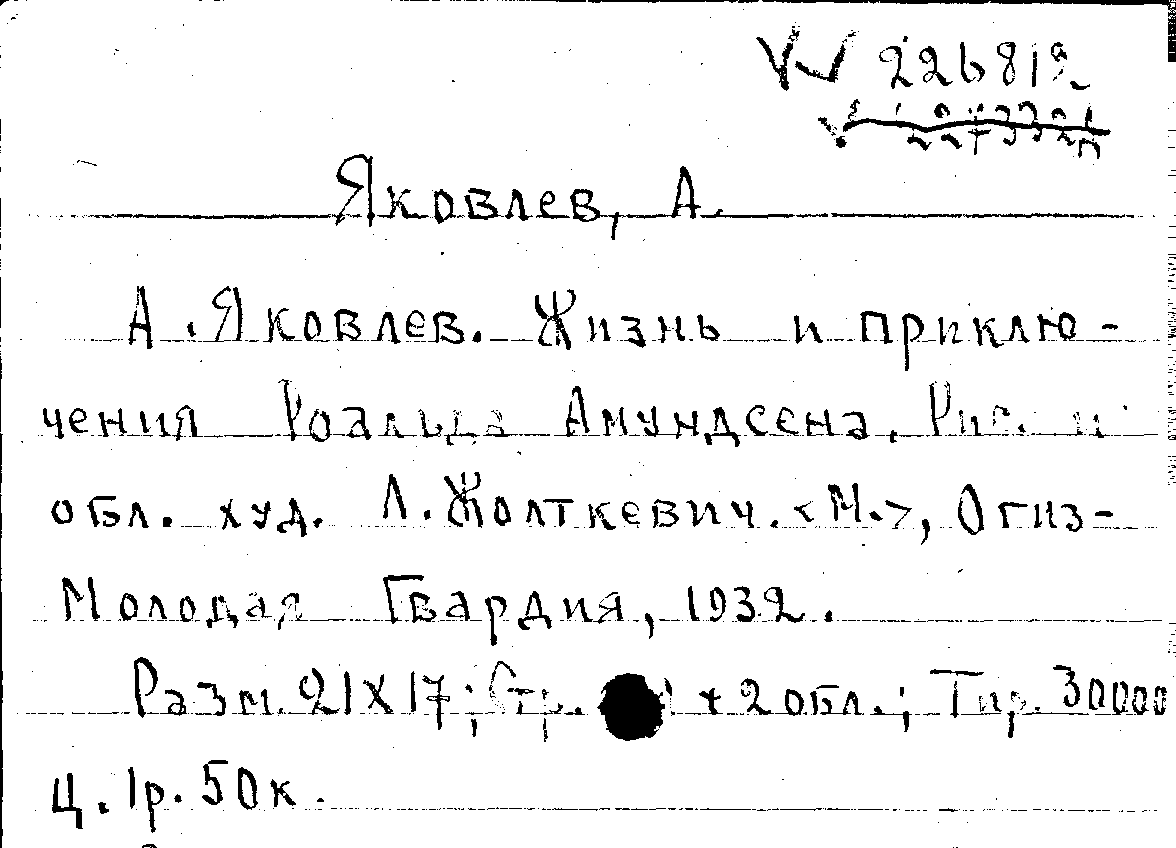 226819
Яковлев, А.
А. Яковлев. Жизнь и приклю-
чения Роальда Амундсена. Рис. и
обл. худ. Л. Жолткевич. <М.>, Огиз-
Молодая Гвардия, 1932.
Разм. 21X17; Стр. + 2 обл.; Тир. 30000
Ц. 1р. 50к.